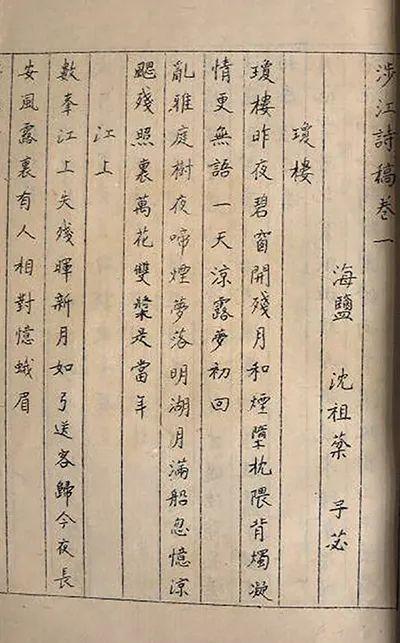 涉江詩稿卷一
海鹽 沈祖棻 子苾
瓊樓
瓊樓昨夜碧窗開殘月和煙墮枕隈背燭凝
情更無語一天涼露夢初回
亂鴉庭樹夜啼煙夢落明湖月滿船忽憶涼
颸殘照裏萬花雙槳是當年
江上
數峯江上失殘暉新月如弓送客歸今夜長
安風露裏有人相對憶蛾眉